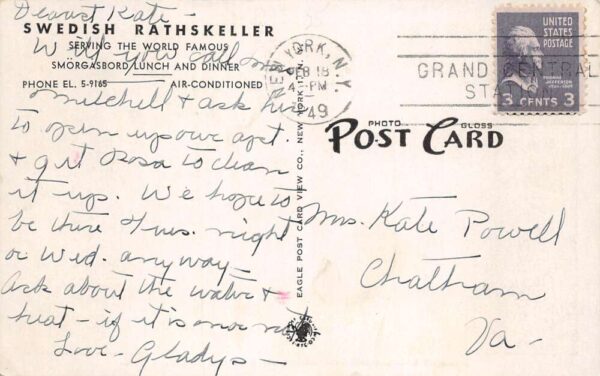 Dearest Kate -
SWEDISH RATHSKELLER
SERVING THE WORLD FAMOUS
Will you call Mr.
SMORGASBORD, LUNCH AND DINNER
PHONE EL. 5-9165 AIR-CONDITIONED
Mitchell & ask him
to open up our apt.
& get Rosa to clean
it up. We hope to
be there Tues. night
or Wed. anyway -
Ask about the water &
heat - if it is on or not
Love - Gladys -
NEW YORK, N.Y.
FEB 18
4 PM
'49
GRAND CENTRAL
STATION
UNITED
STATES
POSTAGE
THOMAS
JEFFERSON
3 CENTS 3
PHOTO GLOSS
POST CARD
EAGLE POST CARD VIEW CO., NEW YORK 1, N.Y.
Mrs. Kate Powell
Chatham
Va -